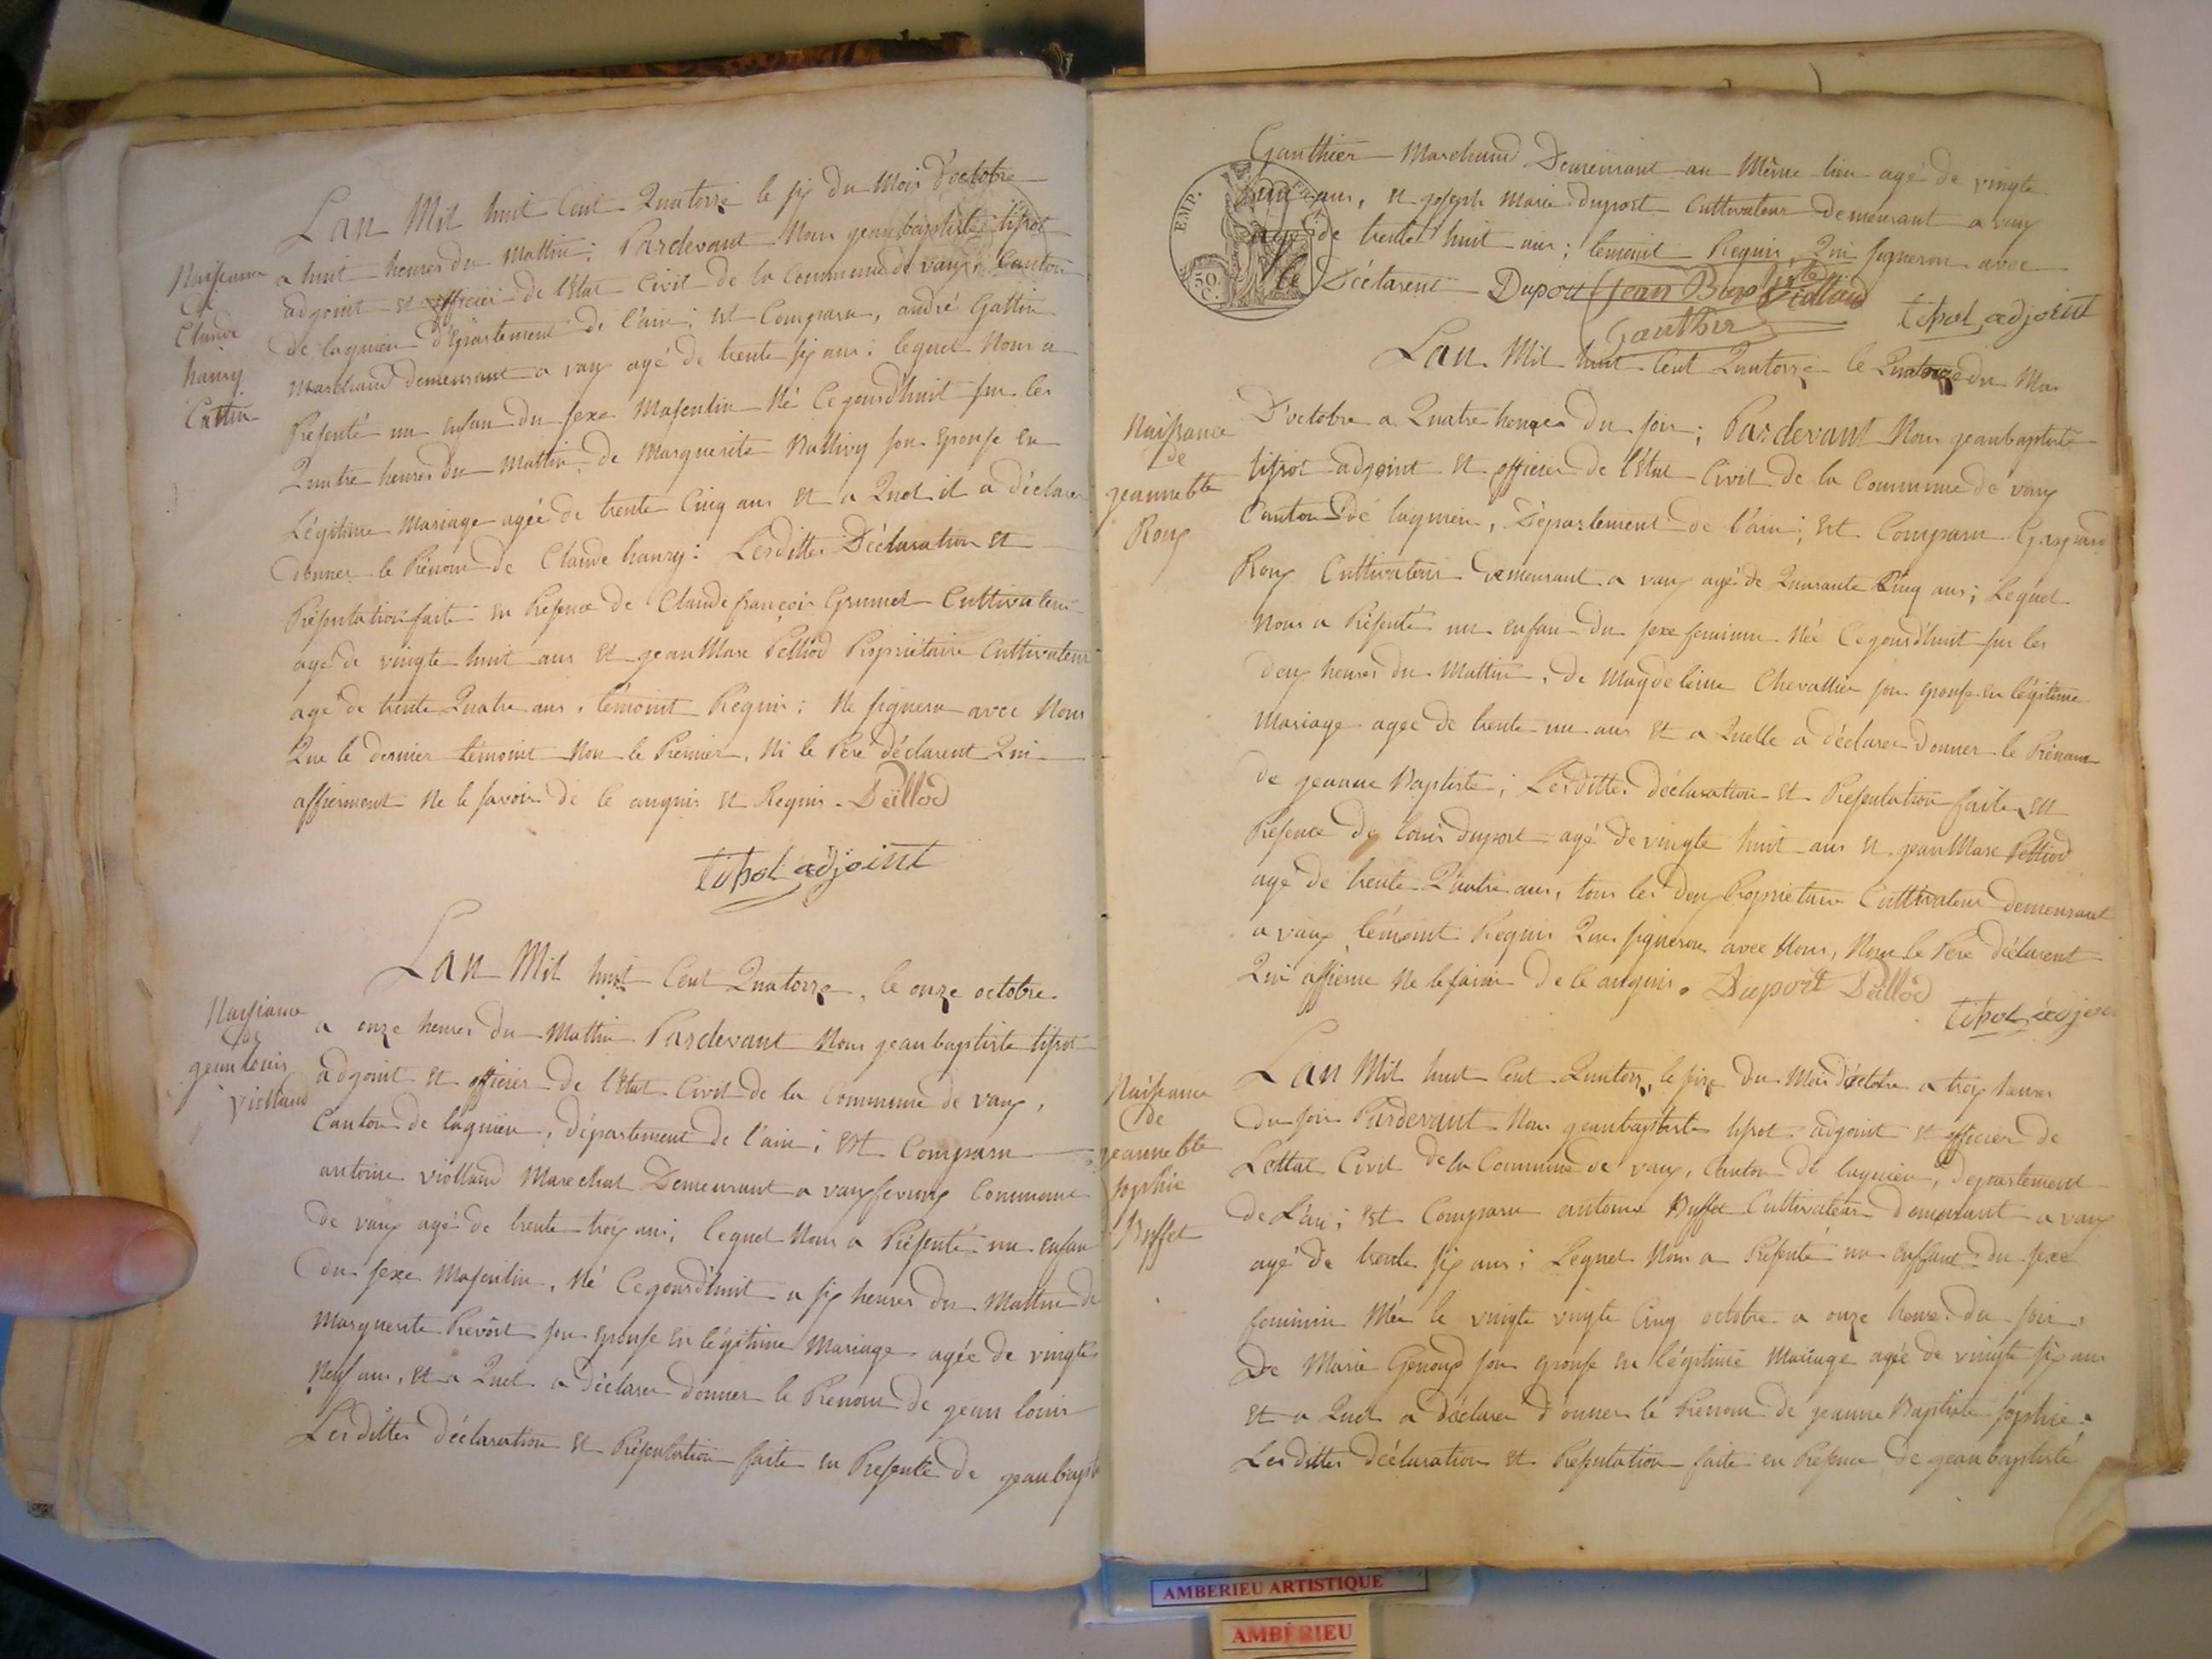 Lan Mil huit Cent Quatorze le six du Mois d'octobre
a huit heures du Mattin; Pardevant Nous jeanbaptiste tipot
adjoint et officier de l'état Civil de la Commune de vaux, Canton
de lagnieu département de l'ain; est Comparu, andré Gattin
Marchand demeurant a vaux agé de trente six ans; lequel Nous a
Présenté un enfan du sexe Masculin Né Cejourd'huit sur les
Quatre heures du Mattin, de Marguerite son Epouse en
Légitime Mariage agée de trente Cinq ans et a Quel il a déclarer
donner le Prénom de Claude hanry: Lesdittes Déclaration et
Présentation faite en Présence de Claude françois Grumet Cultivateur
agé de vingte huit ans et jean Marc Pelliod Propriétaire Cultivateur
agé de trente Quatre ans, témoint Réquis; Ne signera avec Nous
Que le dernier témoint Non le Premier, Ni le Pere déclarent Qui
affierment Ne le savoir de ce anquis et Requis. Peillod
tipot adjoint
Naissance
de
Claude
hanry
Gattin
Lan Mil huit Cent Quatorze, le onze octobre
a onze heures du Mattin Pardevant Nous jeanbaptiste tipot
adjoint et officier de l'état Civil de la Commune de vaux,
Canton de lagnieu, département de l'ain; est Comparu
antoine viollaud Marechal Demeurant a vauxfevroux Commune
de vaux agé de trente trois ans; lequel Nous a Présenté un enfan
du sexe Masculin, Né Cejourd'huit a six heures du Mattin de
Marguerite Prevôst son Epouse en légitime Mariage agée de vingte
Neuf ans, et a Quel a déclarer donner le Prénom de jean louis
Lesdittes déclaration et Présentation faite en Présente de jeanbapt
Naissance
de
jean louis
viollaud
EMP. FR
50
C.
Gauthier Marchand Demeurant au Même lieu agé de vingte
ans, et joseph Marie duport Cultivateur demeurant a vaux
agé de trente huit ans; temoint Requis, Qui signeron avec
le Déclarent Duport Jean Baptiste Viollaud
Gauthier tipot adjoint
Lan Mil huit Cent Quatorze le Quatorze du Moi
D'octobre a Quatre heures du soir; Pardevant Nous jeanbaptiste
tipot adjoint et officier de l'état Civil de la Commune de vaux
Canton de lagnieu, Département de l'ain; est Comparu Gaspard
Roux Cultivateur demeurant a vaux agé de Quarante Cinq ans; Lequel
Nous a Présenté un enfan du sexe feminin Née Cejourd'huit sur les
deux heures du Mattin, de Magdeleine Chevallier son Epouse en légitime
Mariage agée de trente un ans et a Quelle a déclarer donner le Prénom
de jeanne Baptiste; Lesdittes déclaration et Présentation faite en
Présence de louis duport agé de vingte huit ans et jean Marc Pelliod
agé de trente Quatre ans, tous les deux Proprietaire Cultivateur demeurant
a vaux témoint Requis Qui signeron avec Nous, Non le Pere déclarent
Qui affierme Ne le savoir de ce anquis. Duport Peillod
tipot adjoi
Naissance
de
jeannebte
Roux
Lan Mil huit Cent Quatorze, le seize du Mois d'octobre a trois heures
du soir Pardevant Nous jeanbaptiste tipot adjoint et officier de
Lettat Civil de la Commune de vaux, Canton de lagnieu, departement
de L'ain; est Comparu antoine Buffet Cultivateur demeurant a vaux
agé de trente six ans; Lequel Nous a Présenté un enffant du sexe
feminin Née le vingte vingte Cinq octobre a onze heures du soir,
De Marie Genoud son Epouse en légitime Mariage agée de vingte six ans
et a Quel a déclarer donner le Prénom de jeanne Baptiste sophie.
Lesdittes déclaration et Présentation faite en Présence de jeanbaptiste
Naissance
de
jeannebte
sophie
Buffet
AMBERIEU ARTISTIQUE
AMBÉRIEU